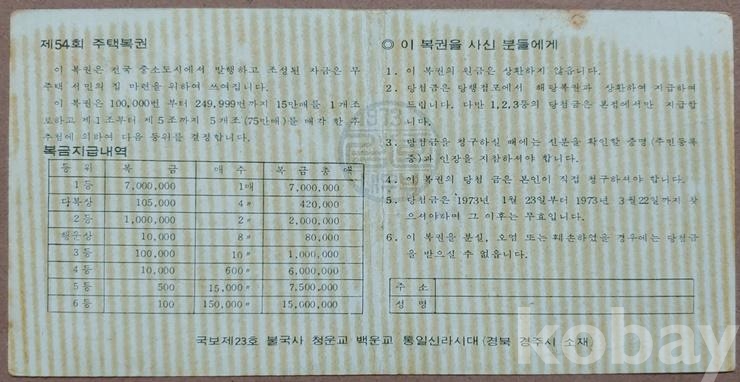 제54회 주택복권
이 복권은 전국 중소도시에서 발행하고 조성된 자금은 무
주택 서민의 집 마련을 위하여 쓰여집니다.
이 복권은 100,000번 부터 249,999번까지 15만매를 1개조
로하고 제1조부터 제5조까지 5개조(75만매)를 매각 한 후
추첨에 의하여 다음 등위를 결정합니다.
복금지급내역
등위 복금 매수 복금총액
1등 7,000,000 1매 7,000,000
다복상 105,000 4〃 420,000
2등 1,000,000 2〃 2,000,000
행운상 10,000 8〃 80,000
3등 100,000 10〃 1,000,000
4등 10,000 600〃 6,000,000
5등 500 15,000〃 7,500,000
6등 100 150,000〃 15,000,000
◎ 이 복권을 사신 분들에게
1. 이 복권의 원금은 상환하지 않습니다.
2. 당첨금은 당행점포에서 해당복권과 상환하여 지급하여
드립니다. 다만 1,2,3등의 당첨금은 본점에서만 지급합
니다.
3. 당첨금을 청구하실 때에는 신분을 확인할 증명(주민등록
증)과 인장을 지참하셔야 합니다.
4. 이 복권의 당첨 금은 본인이 직접 청구하셔야 합니다.
5. 당첨금은 1973년 1월 23일부터 1973년 3월 22일까지 찾
으셔야하며 그 이후는 무효입니다.
6. 이 복권을 분실, 오염 또는 훼손하였을 경우에는 당첨금
을 받으실 수 없읍니다.
주소
성명
국보제23호 불국사 청운교 백운교 통일신라시대(경북 경주시 소재)
kobay